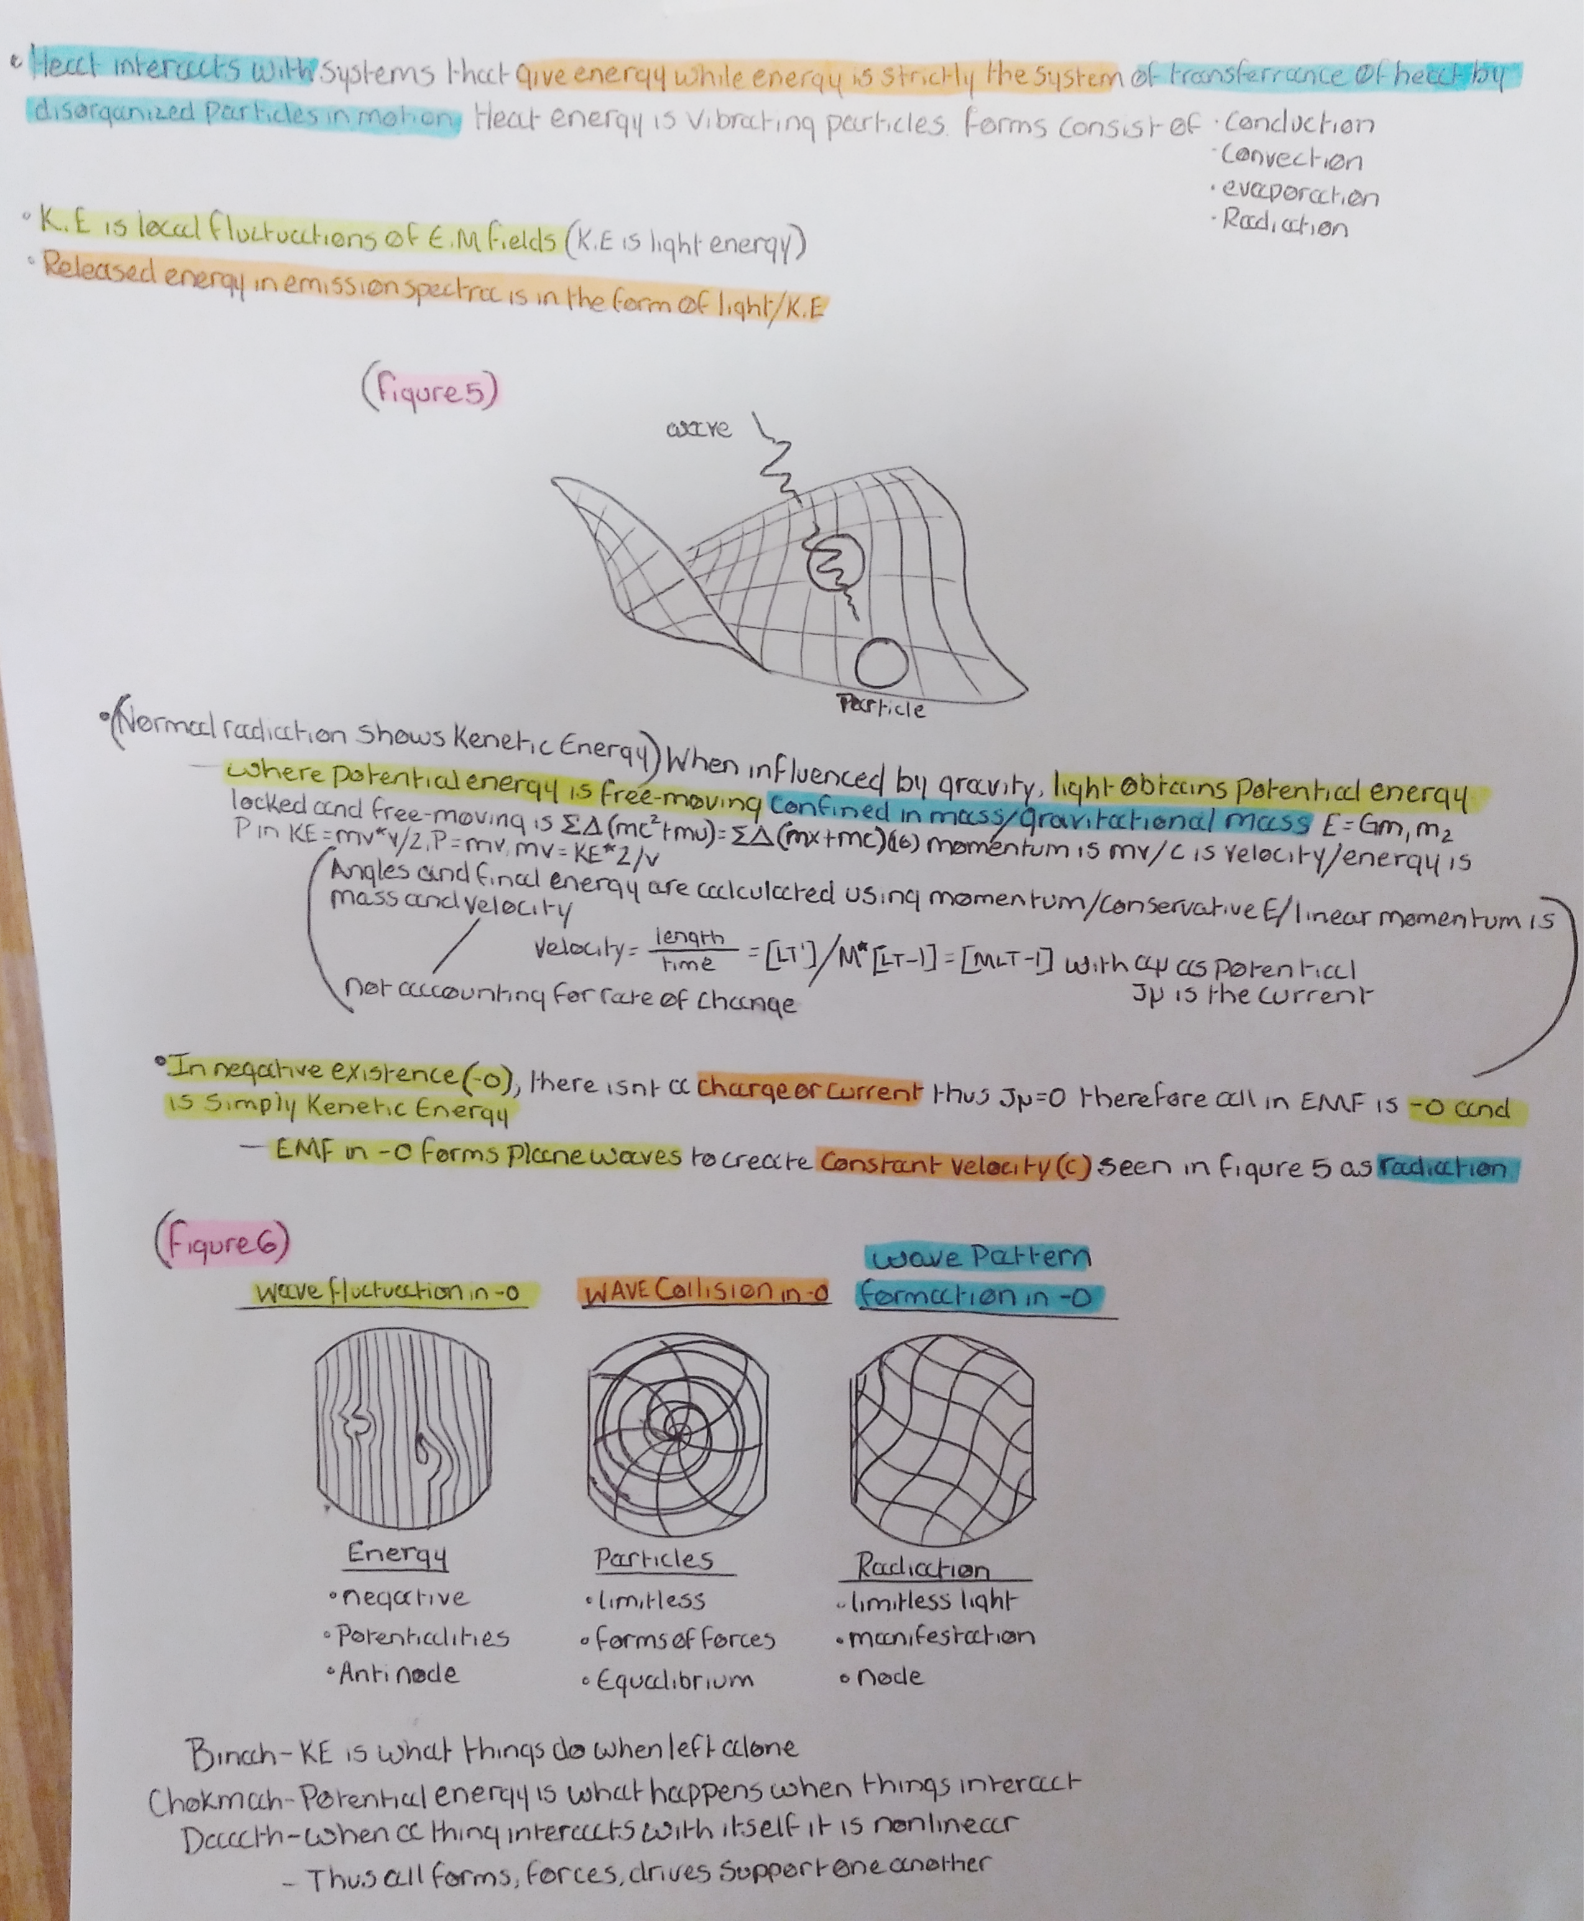 • Heat interacts with systems that give energy while energy is strictly the system of transferrance of heat by
disorganized particles in motion. Heat energy is vibrating particles. Forms consist of • Conduction
• Convection
• evaporation
• Radiation
• K.E is local fluctuations of E.M fields (K.E is light energy)
• Released energy in emission spectra is in the form of light/K.E
(figure 5)
wave
Particle
• (Normal radiation shows Kenetic Energy) When influenced by gravity, light obtains potential energy
— where potential energy is free-moving confined in mass/gravitational mass E=Gm,m2
locked and free-moving is ΣΔ(mc²+mv)=ΣΔ(mx+mc)(16) momentum is mv/c is velocity/energy is
P in KE=mv*v/2, P=mv, mv=KE*2/v
Angles and final energy are calculated using momentum/conservative E/linear momentum is
mass and velocity
velocity= length/time = [LT']/M*[LT-1]=[MLT-1] with aμ as potential
not accounting for rate of change
Jμ is the current
• In negative existence(-0), there isnt a charge or current thus Jμ=0 therefore all in EMF is -0 and
is simply Kenetic Energy
— EMF in -0 forms plane waves to create constant velocity(c) seen in figure 5 as radiation
(figure 6)
wave fluctuation in -0
WAVE Collision in -0
wave Pattern
formation in -0
Energy
• negative
• Potentialities
• Antinode
Particles
• limitless
• forms of forces
• Equalibrium
Radiation
• limitless light
• manifestation
• node
Binah- KE is what things do when left alone
Chokmah- Potential energy is what happens when things interact
Daaath- when a thing interacts with itself it is nonlinear
- Thus all forms, forces, drives support one another